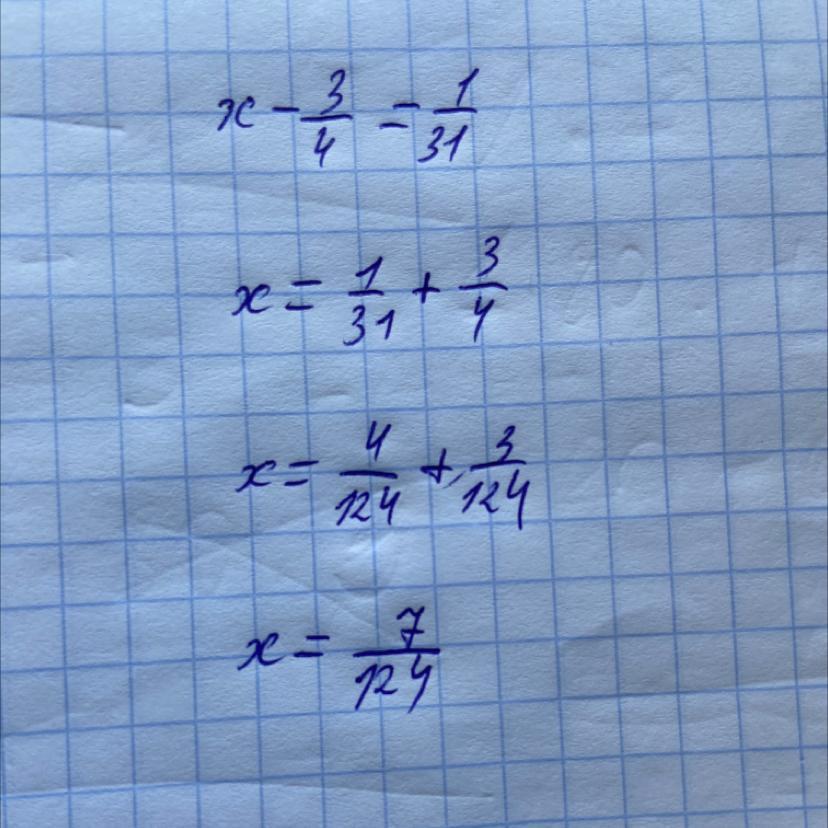 x - 3/4 = 1/31
x = 1/31 + 3/4
x = 4/124 + 3/124
x = 7/124